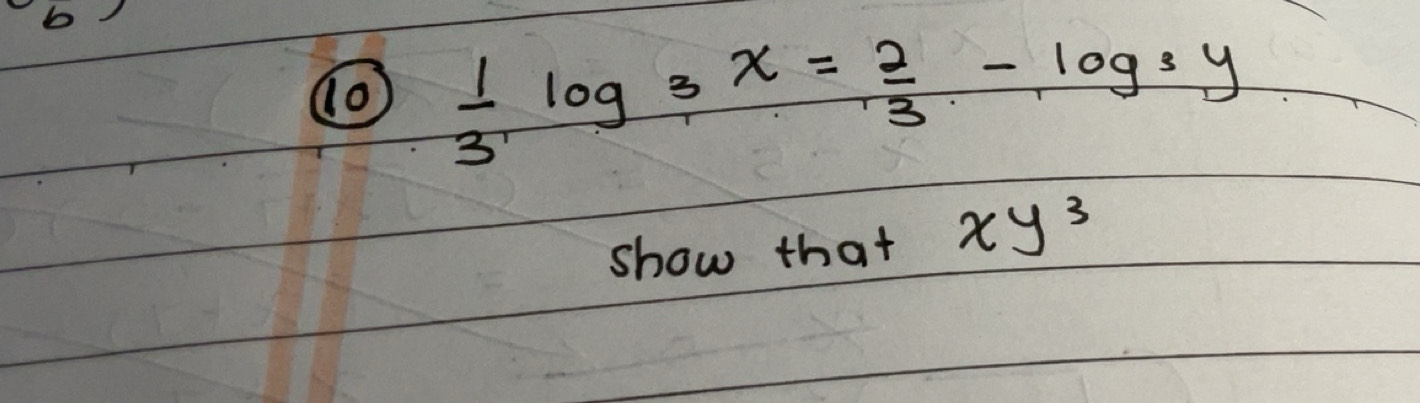 b )
⑩ 1/3 log 3 x = 2/3 - log 3 y
show that xy³